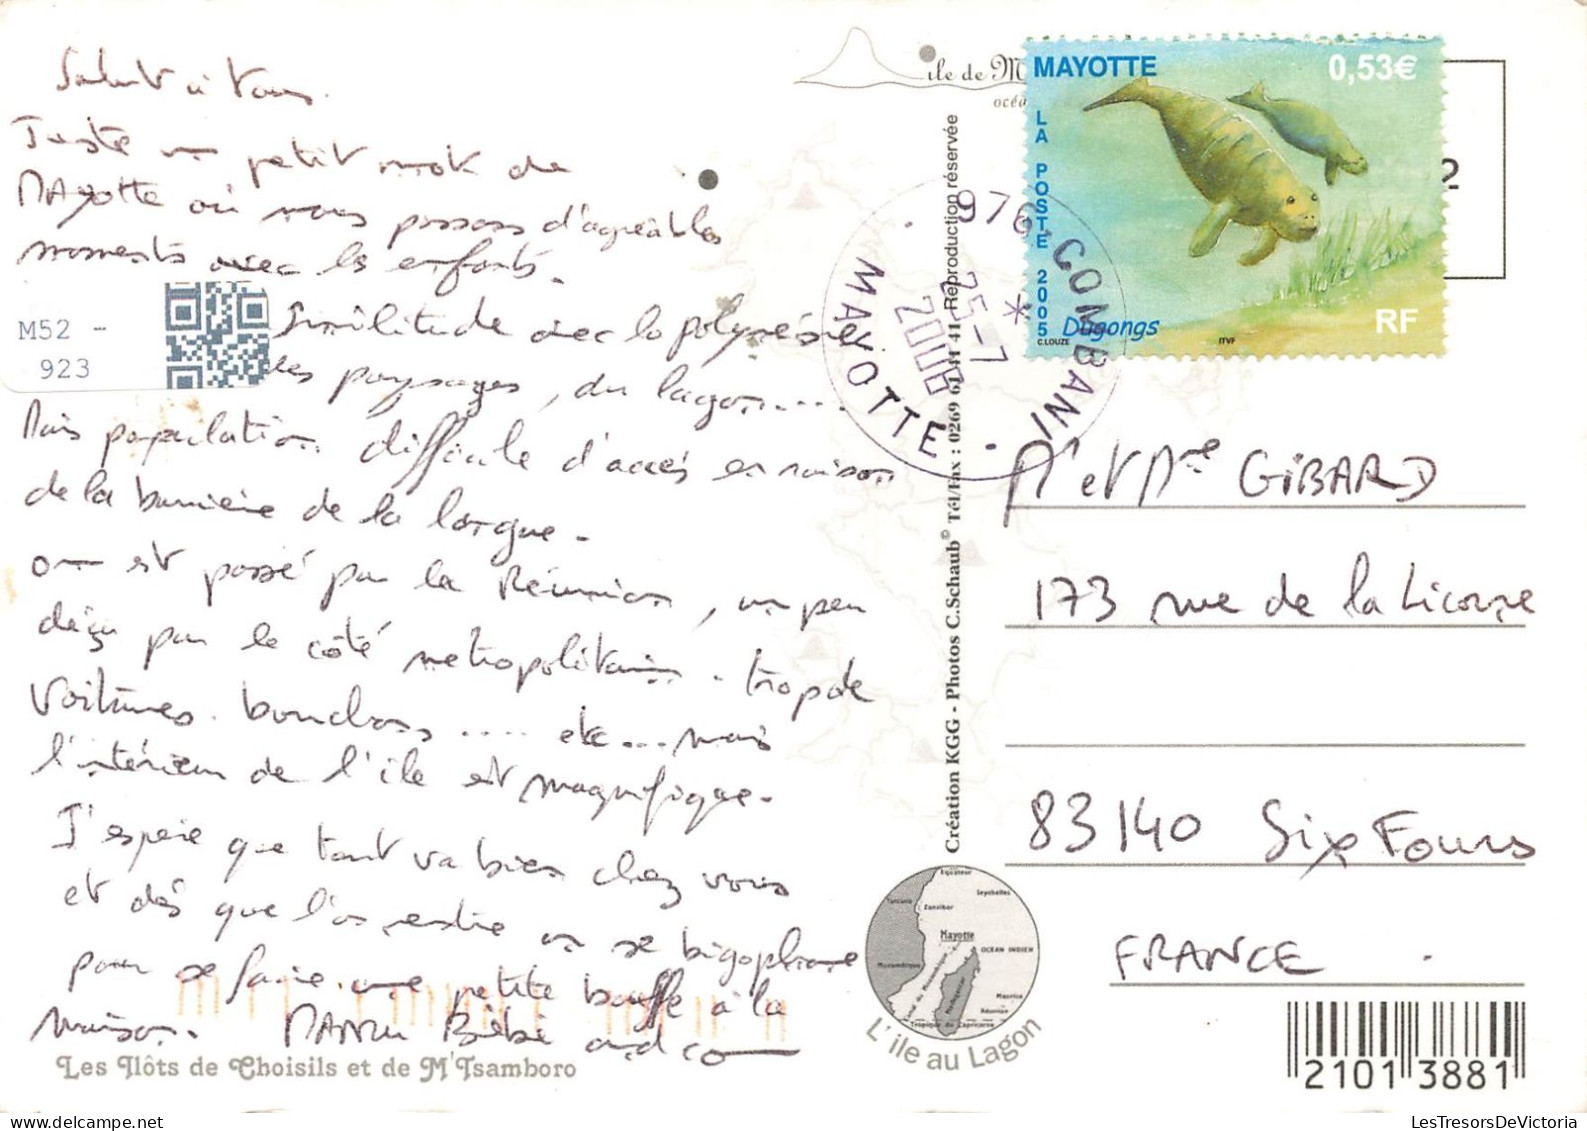 Salut à tous.
Juste un petit mot de
MAyotte où nous passons d'agréables
moments avec les enfants.
M52 -
923
Similitude avec la polynésie
les paysages, du lagon....
Mais population difficile d'accès en raison
de la barrière de la langue.
on est passé par la Réunion, un peu
déçu par le côté métropolitain. trop de
voitures. bouchons.... etc... mais
l'intérieur de l'île est magnifique.
J'espère que tout va bien chez vous
et dès que l'on rentre on se bigophone
pour se faire une petite bouffe à la
maison. MANU Bébé and co
Les Ilôts de Choisils et de M'Tsamboro
île de M
océa
Création KGG - Photos C.Schaub© Tél/Fax : 0269 61 41 41 Reproduction réservée
MAYOTTE 0,53€
LA POSTE 2005
Dugongs
C.LOUZE ITVF
RF
976-COMBANI
*
25-7
2006
MAYOTTE
2
Mr et Mme GIBARD
173 rue de la Licorne
83140 Six Fours
FRANCE
Equateur
Seychelles
Tanzanie
Zanzibar
Mayotte
OCEAN INDIEN
Mozambique
Canal du Mozambique
Madagascar
Maurice
Réunion
Tropique du Capricorne
L'île au Lagon
2101 3881
LesTresorsDeVictoria.com